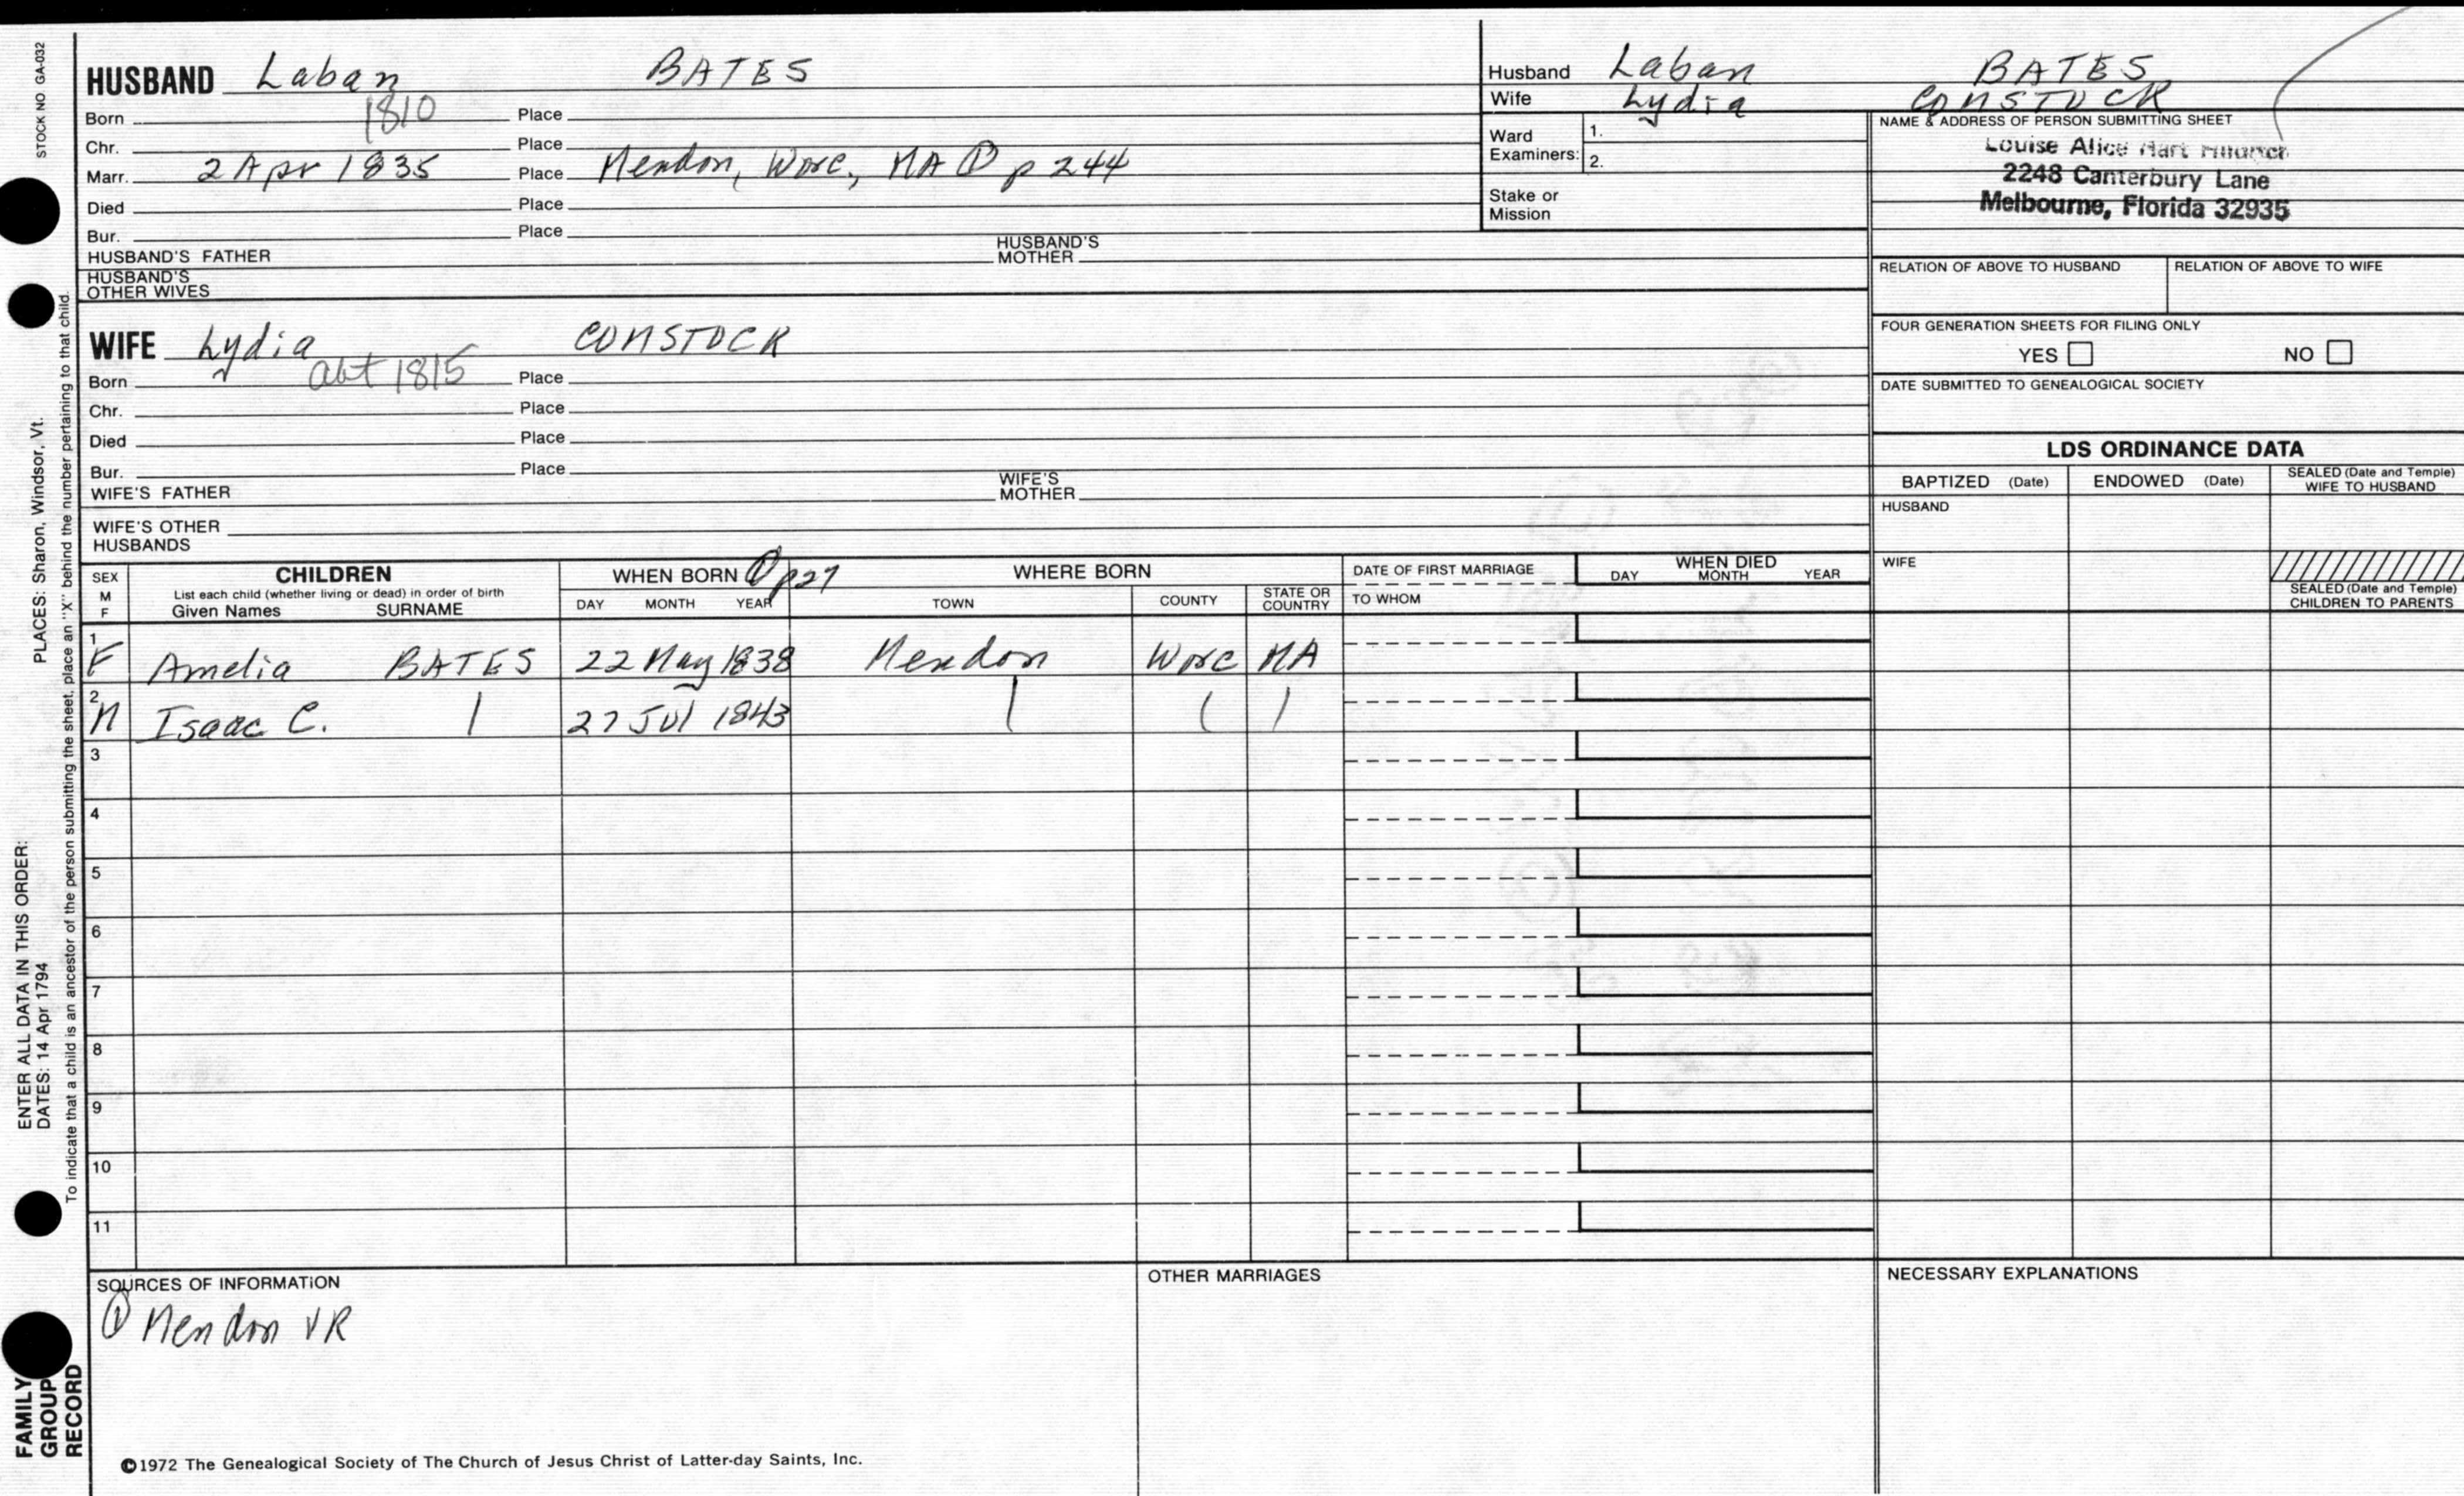 STOCK NO GA-032
PLACES: Sharon, Windsor, Vt.
ENTER ALL DATA IN THIS ORDER:
DATES: 14 Apr 1794
To indicate that a child is an ancestor of the person submitting the sheet, place an "X" behind the number pertaining to that child.
FAMILY
GROUP
RECORD
HUSBAND Laban BATES
Born 1810 Place
Chr. Place
Marr. 2 Apr 1835 Place Mendon, Worc., MA ① p 244
Died Place
Bur. Place
HUSBAND'S FATHER HUSBAND'S MOTHER
HUSBAND'S OTHER WIVES
WIFE Lydia COMSTOCK
Born abt 1815 Place
Chr. Place
Died Place
Bur. Place
WIFE'S FATHER WIFE'S MOTHER
WIFE'S OTHER HUSBANDS
Husband Laban BATES
Wife Lydia COMSTOCK
Ward Examiners: 1.
2.
Stake or Mission
NAME & ADDRESS OF PERSON SUBMITTING SHEET
Louise Alice Hart
2248 Canterbury Lane
Melbourne, Florida 32935
RELATION OF ABOVE TO HUSBAND RELATION OF ABOVE TO WIFE
FOUR GENERATION SHEETS FOR FILING ONLY
YES NO
DATE SUBMITTED TO GENEALOGICAL SOCIETY
LDS ORDINANCE DATA
BAPTIZED (Date) ENDOWED (Date) SEALED (Date and Temple) WIFE TO HUSBAND
HUSBAND
WIFE
SEALED (Date and Temple) CHILDREN TO PARENTS
SEX M F
CHILDREN
List each child (whether living or dead) in order of birth
Given Names SURNAME
WHEN BORN ① p27
DAY MONTH YEAR
WHERE BORN
TOWN COUNTY STATE OR COUNTRY
DATE OF FIRST MARRIAGE
TO WHOM
WHEN DIED
DAY MONTH YEAR
1 F Amelia BATES 22 May 1838 Mendon Worc MA
2 M Isaac C. | 27 Jul 1843 | | |
3
4
5
6
7
8
9
10
11
SOURCES OF INFORMATION
① Mendon VR
OTHER MARRIAGES
NECESSARY EXPLANATIONS
©1972 The Genealogical Society of The Church of Jesus Christ of Latter-day Saints, Inc.